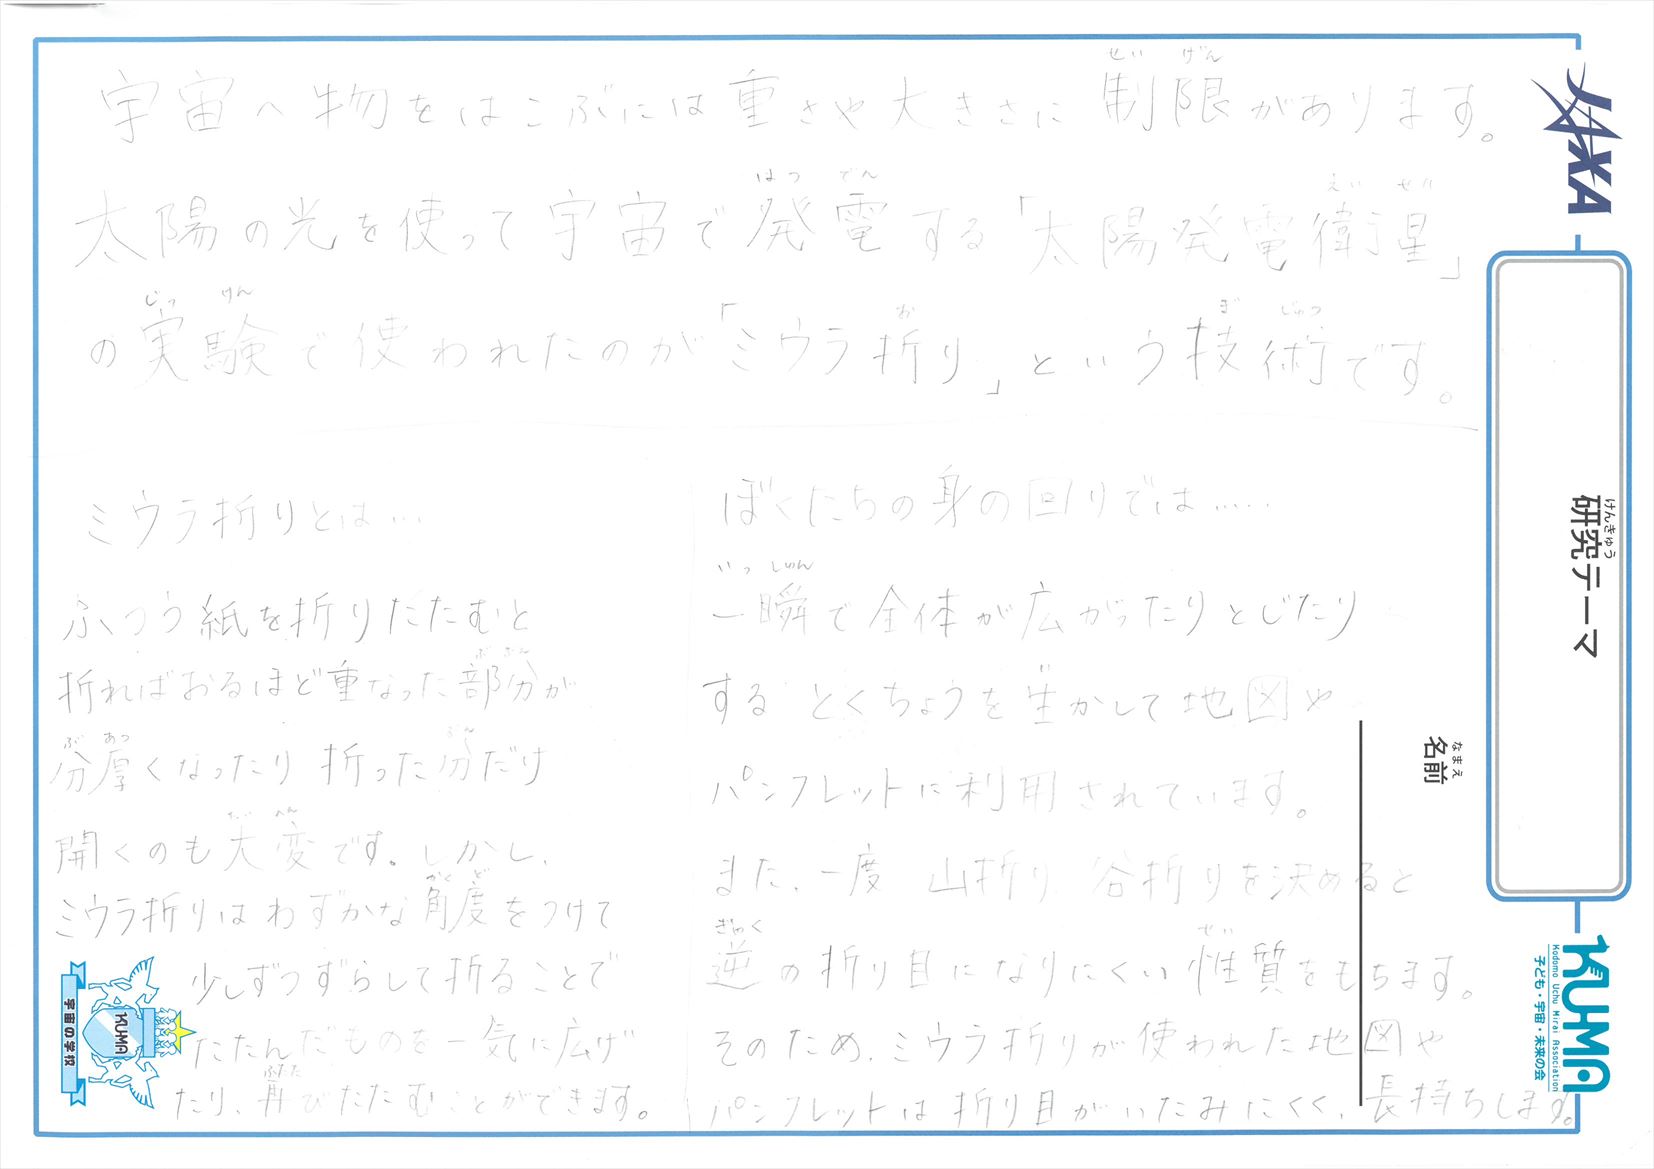 せい げん
宇宙へ物をはこぶには重さや大きさに制限があります。
はつ でん えい せい
太陽の光を使って宇宙で発電する「太陽発電衛星」
じっ けん お ぎ じゅつ
の実験で使われたのが「ミウラ折り」という技術です。
ミウラ折りとは…
ふつう紙を折りたたむと
ぶ ぶん
折ればおるほど重なった部分が
ぶ あつ ぶん
分厚くなったり折った分だけ
たい へん
開くのも大変です。しかし、
かく ど
ミウラ折りはわずかな角度をつけて
少しずつずらして折ることで
たたんだものを一気に広げ
ふたた
たり、再びたたむことができます。
ぼくたちの身の回りでは……
いっ しゅん
一瞬で全体が広がったりとじたり
するとくちょうを生かして地図や
パンフレットに利用されています。
また、一度山折り谷折りを決めると
ぎゃく せい
逆の折り目になりにくい性質をもちます。
そのため、ミウラ折りが使われた地図や
パンフレットは折り目がいたみにくく、長持ちします。
JAXA
けんきゅう
研究テーマ
なまえ
名前
KU-MA
Kodomo Uchu Mirai Association
子ども・宇宙・未来の会
KU-MA
宇宙の学校